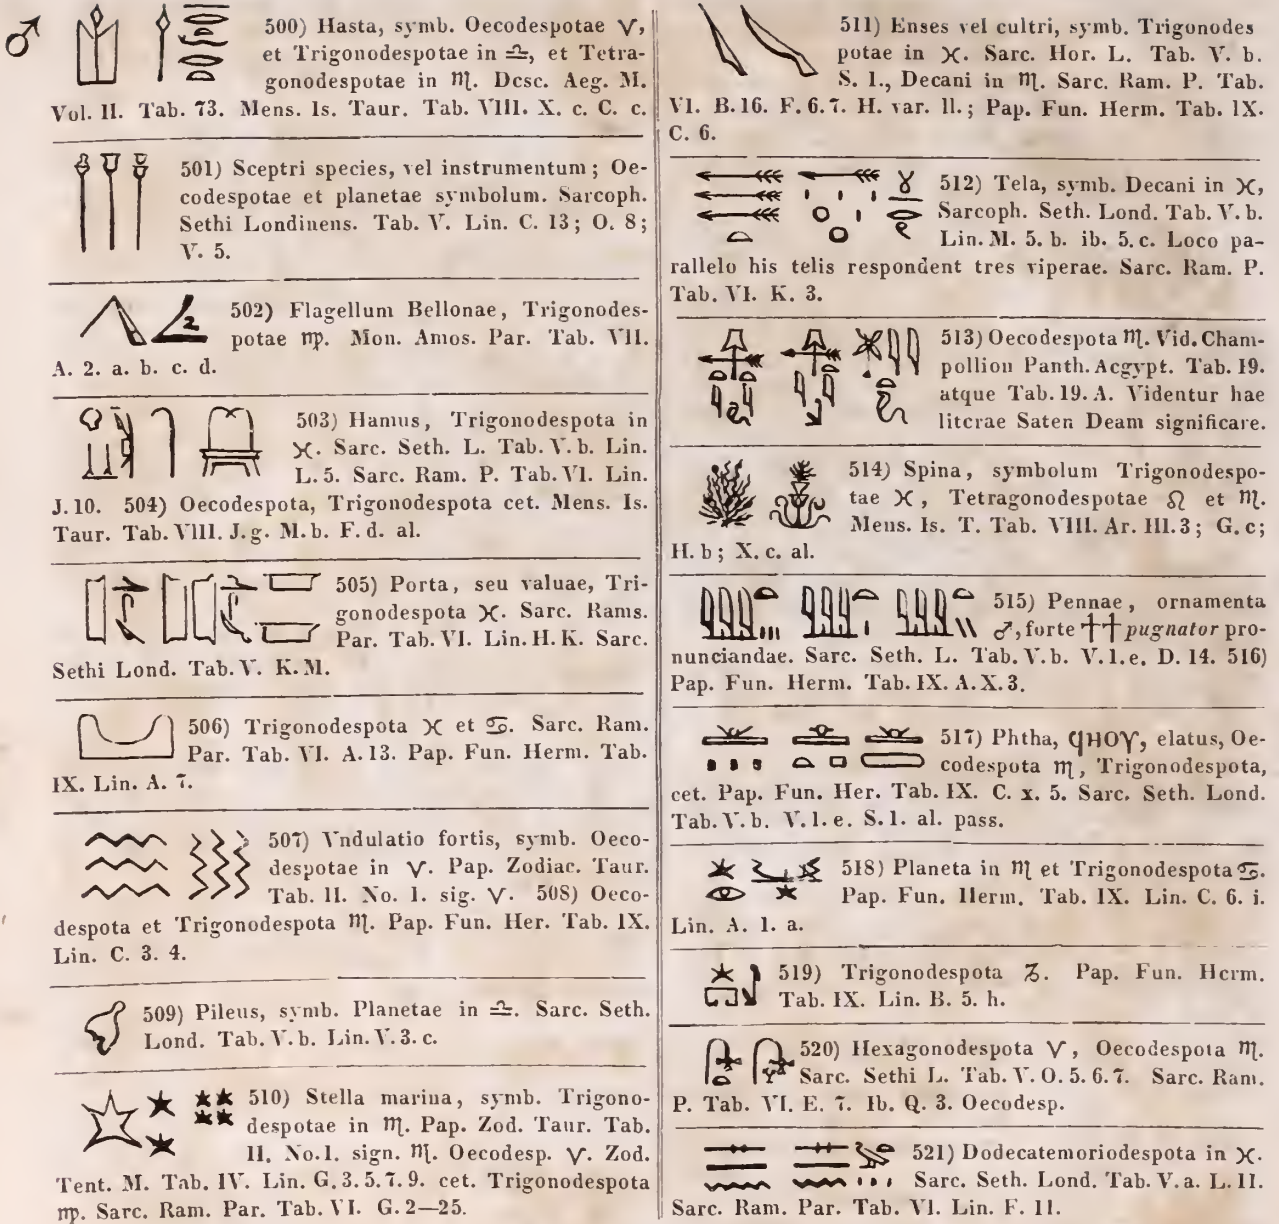 ♂ 500) Hasta, symb. Oecodespotae ♈,
et Trigonodespotae in ♎, et Tetra-
gonodespotae in ♏. Desc. Aeg. M.
Vol. II. Tab. 73. Mens. Is. Taur. Tab. VIII. X. c. C. c.
501) Sceptri species, vel instrumentum; Oe-
codespotae et planetae symbolum. Sarcoph.
Sethi Londinens. Tab. V. Lin. C. 13; O. 8;
V. 5.
502) Flagellum Bellonae, Trigonodes-
potae ♍. Mon. Amos. Par. Tab. VII.
A. 2. a. b. c. d.
503) Hamus, Trigonodespota in
♓. Sarc. Seth. L. Tab. V. b. Lin.
L. 5. Sarc. Ram. P. Tab. VI. Lin.
J. 10. 504) Oecodespota, Trigonodespota cet. Mens. Is.
Taur. Tab. VIII. J. g. M. b. F. d. al.
505) Porta, seu valuae, Tri-
gonodespota ♓. Sarc. Rams.
Par. Tab. VI. Lin. H. K. Sarc.
Sethi Lond. Tab. V. K. M.
506) Trigonodespota ♓ et ♋. Sarc. Ram.
Par. Tab. VI. A. 13. Pap. Fun. Herm. Tab.
IX. Lin. A. 7.
507) Vndulatio fortis, symb. Oeco-
despotae in ♈. Pap. Zodiac. Taur.
Tab. II. No. 1. sig. ♈. 508) Oeco-
despota et Trigonodespota ♏. Pap. Fun. Her. Tab. IX.
Lin. C. 3. 4.
509) Pileus, symb. Planetae in ♎. Sarc. Seth.
Lond. Tab. V. b. Lin. V. 3. c.
510) Stella marina, symb. Trigono-
despotae in ♏. Pap. Zod. Taur. Tab.
II. No. 1. sign. ♏. Oecodesp. ♈. Zod.
Tent. M. Tab. IV. Lin. G. 3. 5. 7. 9. cet. Trigonodespota
♍. Sarc. Ram. Par. Tab. VI. G. 2—25.
511) Enses vel cultri, symb. Trigonodes
potae in ♓. Sarc. Hor. L. Tab. V. b.
S. 1., Decani in ♏. Sarc. Ram. P. Tab.
VI. B. 16. F. 6. 7. H. var. ll.; Pap. Fun. Herm. Tab. IX.
C. 6.
512) Tela, symb. Decani in ♓,
Sarcoph. Seth. Lond. Tab. V. b.
Lin. M. 5. b. ib. 5. c. Loco pa-
rallelo his telis respondent tres viperae. Sarc. Ram. P.
Tab. VI. K. 3.
513) Oecodespota ♏. Vid. Cham-
pollion Panth. Aegypt. Tab. 19.
atque Tab. 19. A. Videntur hae
literae Saten Deam significare.
514) Spina, symbolum Trigonodespo-
tae ♓, Tetragonodespotae ♌ et ♏.
Mens. Is. T. Tab. VIII. Ar. III. 3; G. c;
H. b; X. c. al.
515) Pennae, ornamenta
♂, forte ϯϯ pugnator pro-
nunciandae. Sarc. Seth. L. Tab. V. b. V. 1. e. D. 14. 516)
Pap. Fun. Herm. Tab. IX. A. X. 3.
517) Phtha, ϥHOY, elatus, Oe-
codespota ♏, Trigonodespota,
cet. Pap. Fun. Her. Tab. IX. C. x. 5. Sarc. Seth. Lond.
Tab. V. b. V. 1. e. S. 1. al. pass.
518) Planeta in ♏ et Trigonodespota ♋.
Pap. Fun. Herm. Tab. IX. Lin. C. 6. i.
Lin. A. 1. a.
519) Trigonodespota ♑. Pap. Fun. Herm.
Tab. IX. Lin. B. 5. h.
520) Hexagonodespota ♈, Oecodespota ♏.
Sarc. Sethi L. Tab. V. O. 5. 6. 7. Sarc. Ram.
P. Tab. VI. E. 7. Ib. Q. 3. Oecodesp.
521) Dodecatemoriodespota in ♓.
Sarc. Seth. Lond. Tab. V. a. L. 11.
Sarc. Ram. Par. Tab. VI. Lin. F. 11.